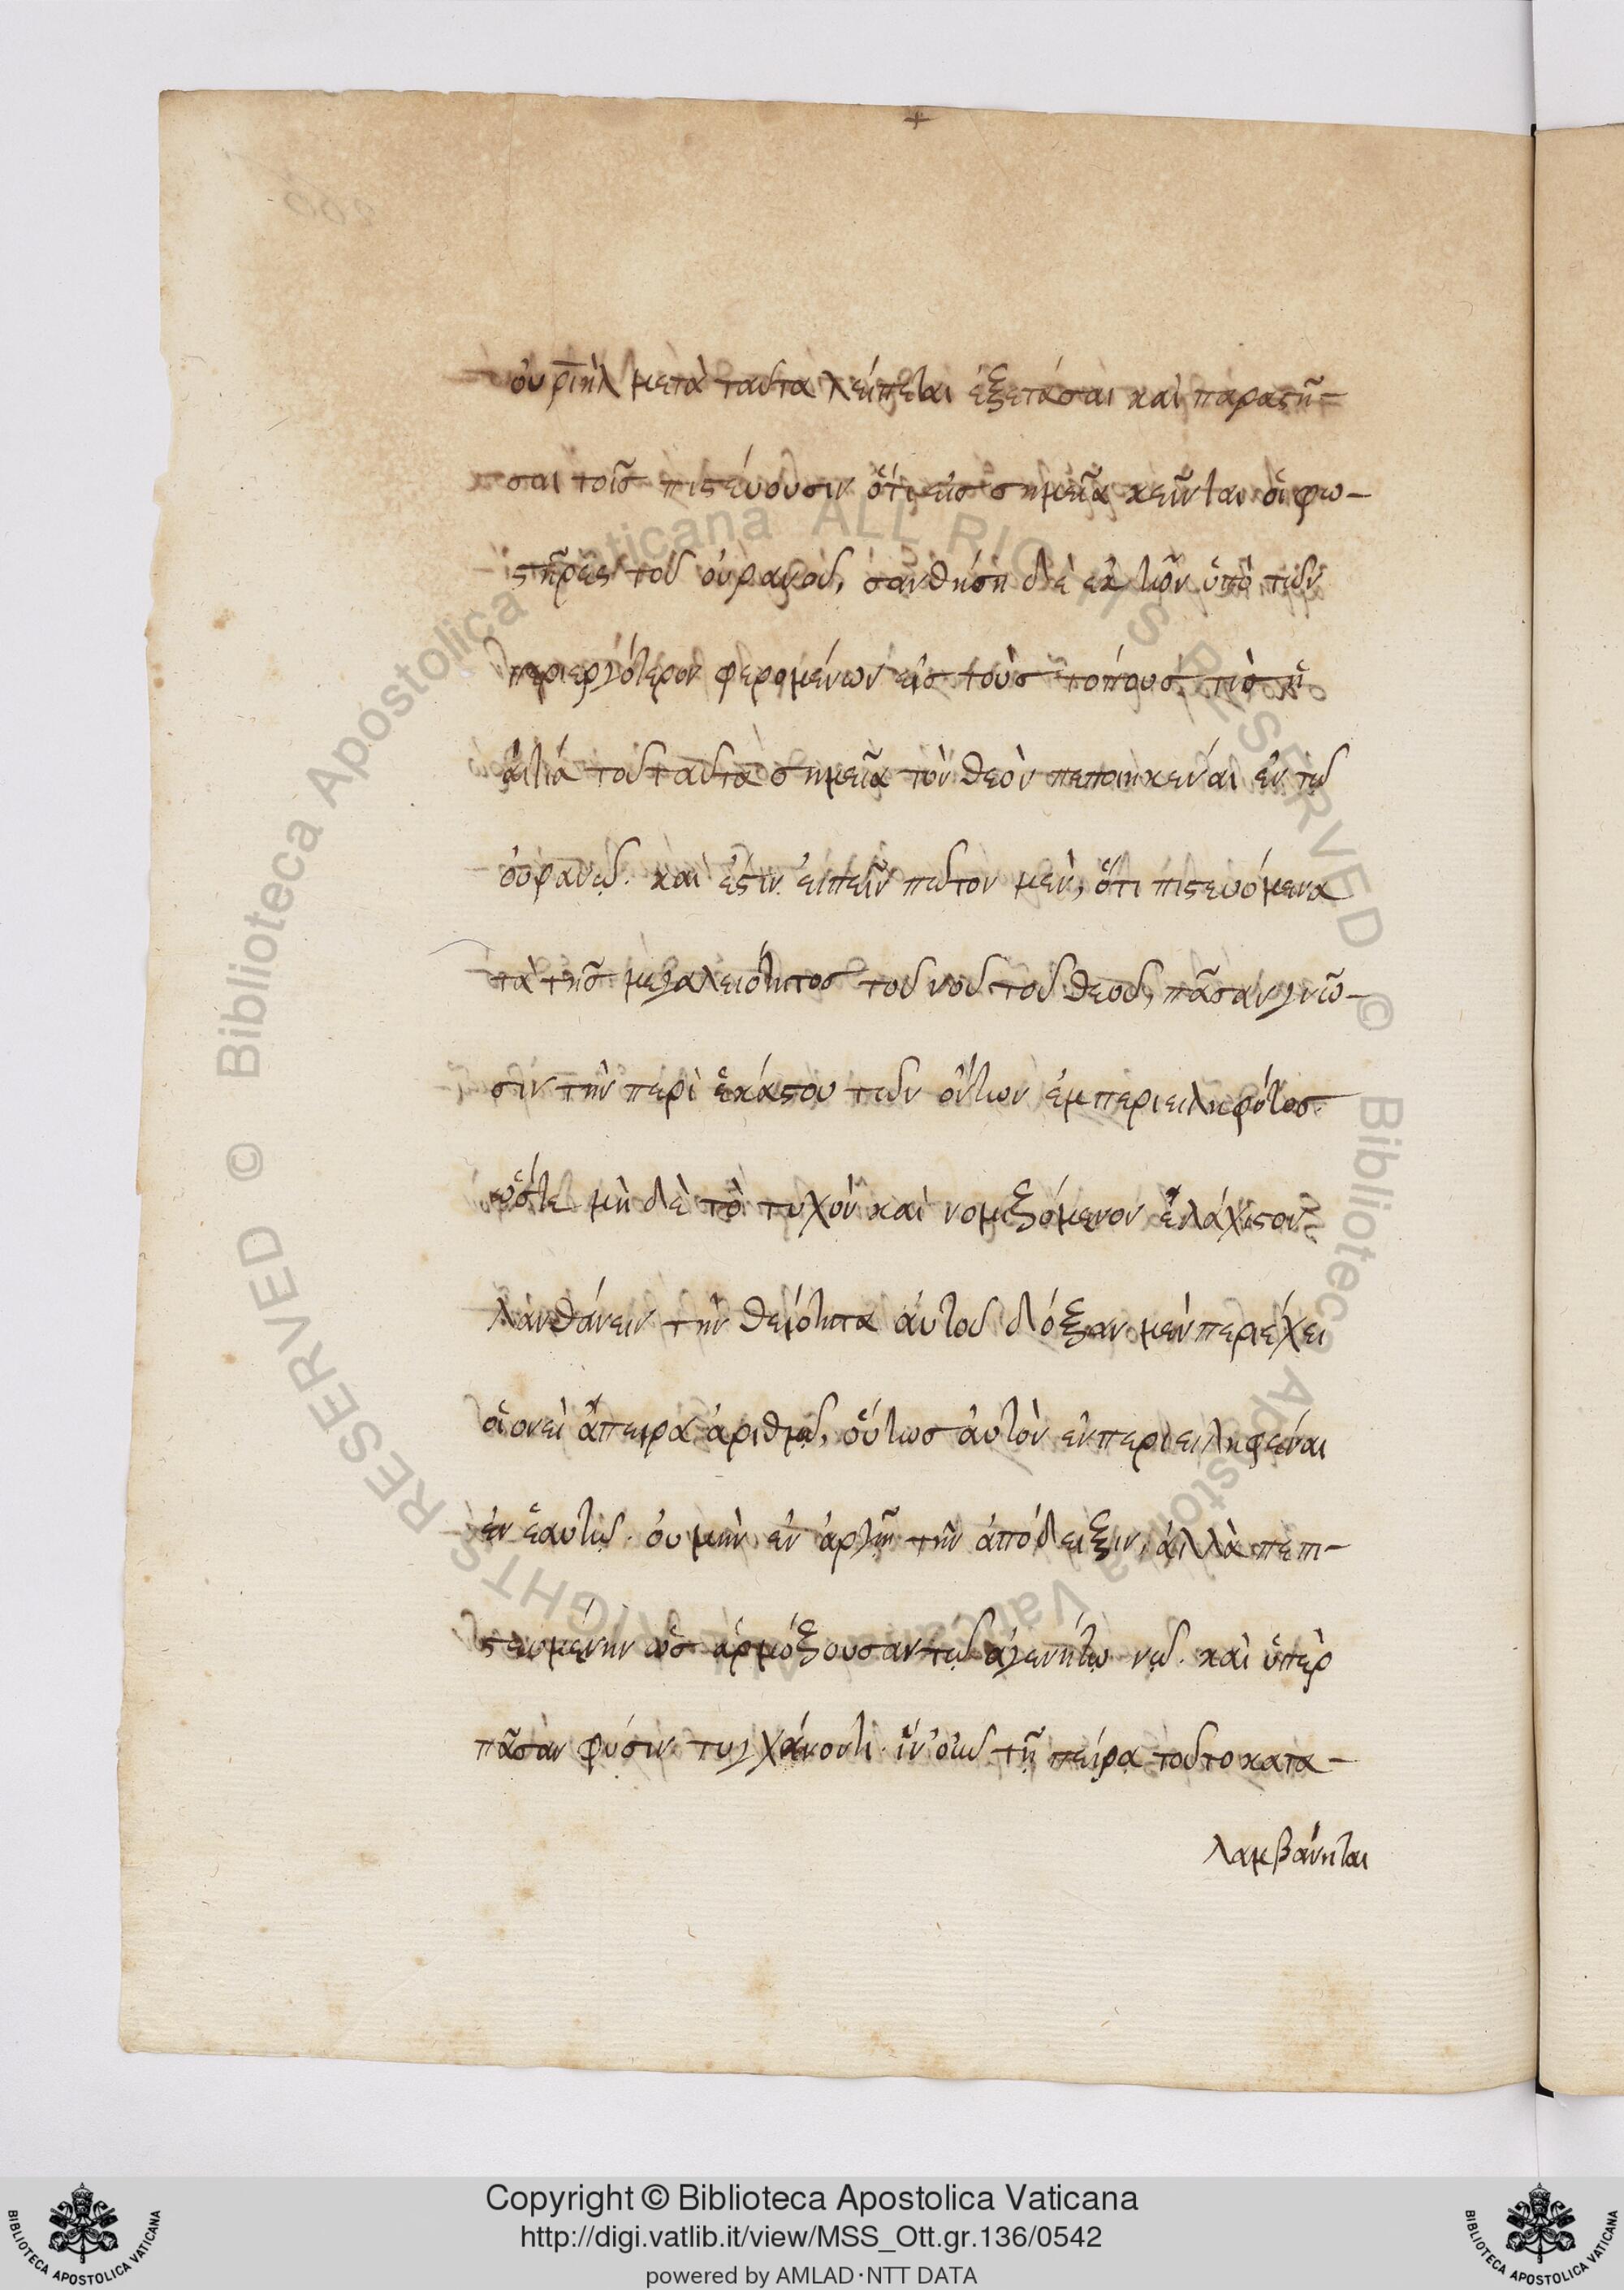 +
οὐριὴλ μετὰ ταῦτα λείπεται ἐξετάσαι καὶ παραστῆ-
σαι τοῖς πιστεύουσιν ὅτι εἰς σημεῖα κεῖνται οἱ φω-
στῆρες τοῦ οὐρανοῦ, δὲ ἐκ τῶν ὑπὸ τῶν
περιεργότερον φερομένων εἰς τοὺς τόπους τίς ἡ
αἰτία τοῦ ταῦτα σημεῖα τὸν θεὸν πεποιηκέναι ἐν τῷ
οὐρανῷ. καὶ ἔστιν εἰπεῖν πῶτον μὲν, ὅτι πιστευόμενα
τὰ τῆς μεγαλειότητος τοῦ νοῦ τοῦ θεοῦ, πᾶσαν γνῶ-
σιν τὴν περὶ ἑκάστου τῶν ὄντων ἐμπεριειληφότος
ὥστε μὴ δὲ τὸ τυχὸν καὶ νομιζόμενον ἐλάχιστον
λανθάνειν τὴν θειότητα αὐτοῦ δόξαν μὲν περιέχει
οἱονεὶ ἄπειρα ἀριθμῷ, οὕτως αὐτὸν ἐνπεριειληφέναι
ἐν ἑαυτῷ. οὐ μὴν ἐν ἀργῇ τὴν ἀπόδειξιν, ἀλλὰ πεπι-
στευμένην ὡς ἁρμόζουσαν τῷ ἀγενήτῳ νῷ. καὶ ὑπὲρ
πᾶσαν φύσιν τυγχάνοντι. ἵν' οὖν τῇ πείρᾳ τοῦτο κατα-
λαμβάνηται
Copyright © Biblioteca Apostolica Vaticana
http://digi.vatlib.it/view/MSS_Ott.gr.136/0542
powered by AMLAD·NTT DATA
BIBLIOTECA APOSTOLICA VATICANA
BIBLIOTECA APOSTOLICA VATICANA
© Biblioteca Apostolica Vaticana ALL RIGHTS RESERVED © Biblioteca Apostolica Vaticana ALL RIGHTS RESERVED